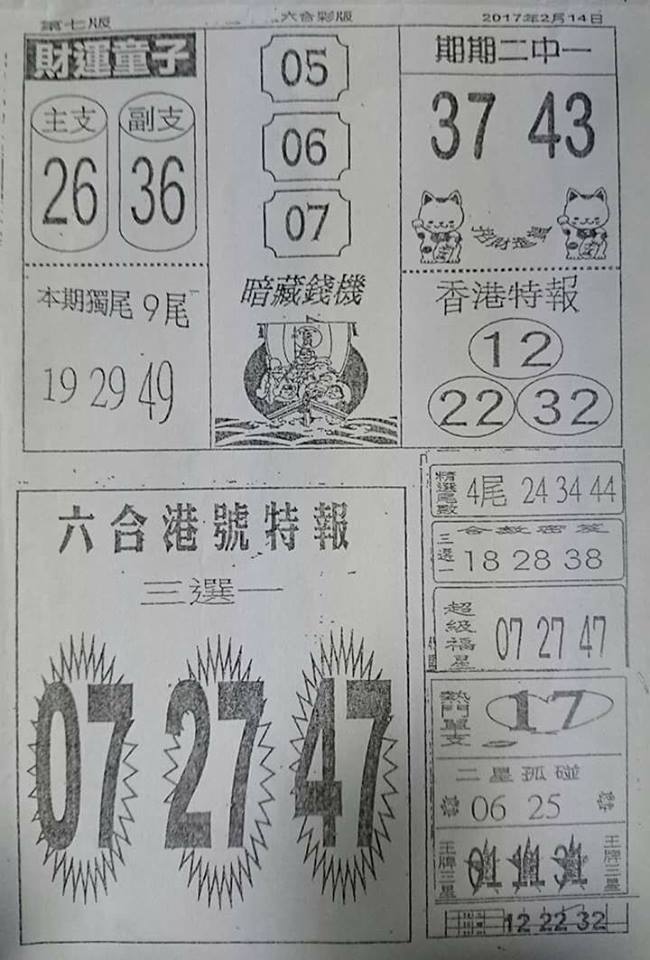 第七版
六合彩版
2017年2月14日
財運童子
主支 副支
26 36
05
06
07
期期二中一
37 43
本期獨尾 9尾
19 29 49
暗藏錢機
香港特報
12
22 32
精選尾數 4尾 24 34 44
三選一 18 28 38
超級福星 07 27 47
六合港號特報
三選一
07 27 47
熱門單支 17
二星孤碰
06 25
王牌三星 01 11 31 王牌三星
12 22 32